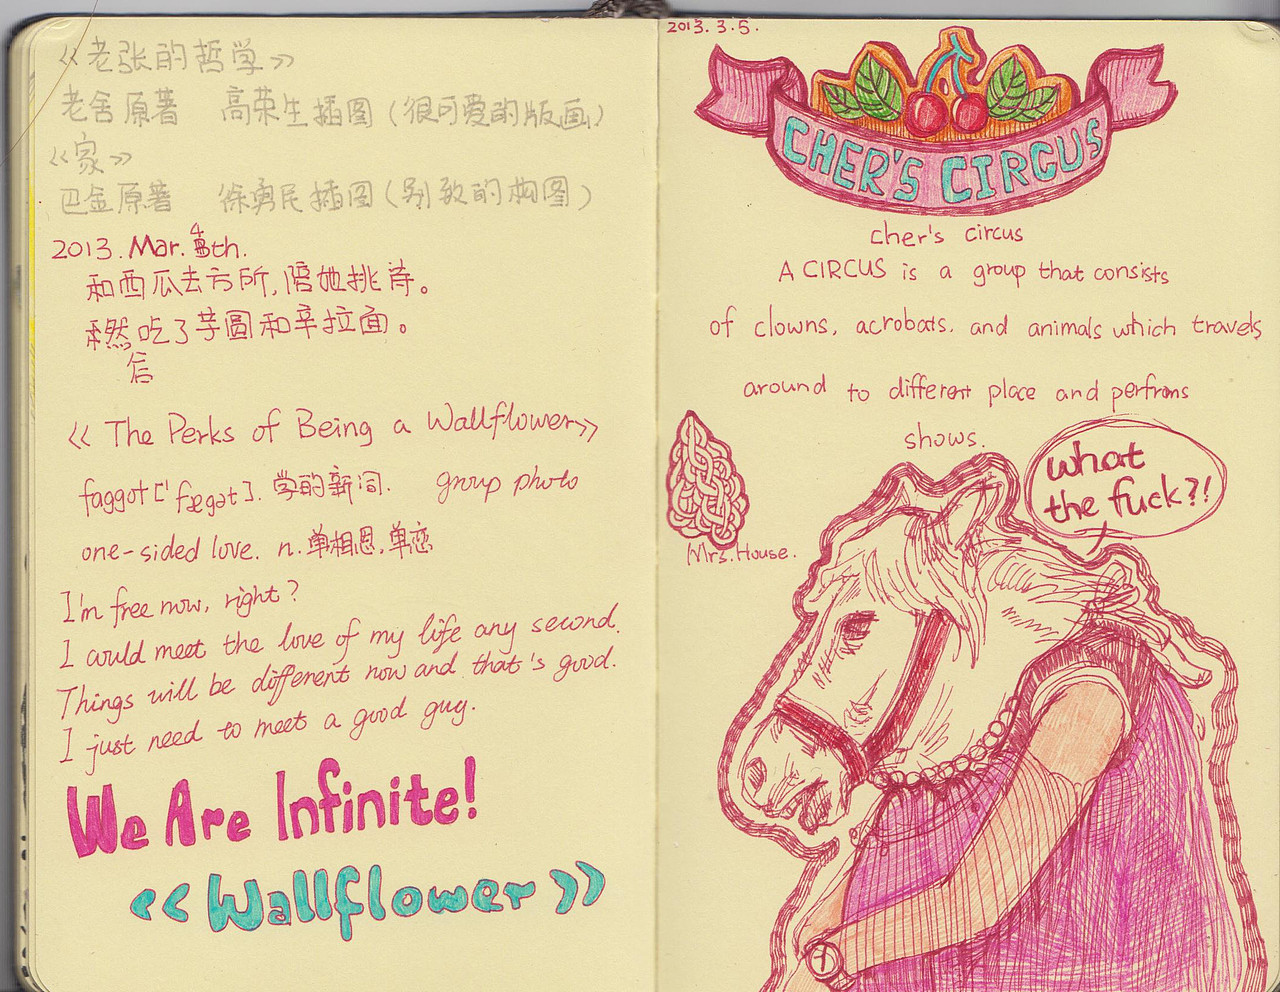 《老张的哲学》
老舍原著 高荣生插图(很可爱的版画)
《家》
巴金原著 徐勇民插图(别致的构图)
2013. Mar. 4th.
和西瓜去方所,陪她挑书。
然后吃了芋圆和辛拉面。
《The Perks of Being a Wallflower》
faggot ['fægət]. 学的新词. group photo
one-sided love. n. 单相思,单恋
I'm free now, right?
I could meet the love of my life any second.
Things will be different now and that's good.
I just need to meet a good guy.
We Are Infinite!
《Wallflower》
2013.3.5.
CHER'S CIRCUS
cher's circus
A CIRCUS is a group that consists
of clowns, acrobats. and animals which travels
around to different place and perfroms
shows.
what
the fuck?!
Mrs. House.